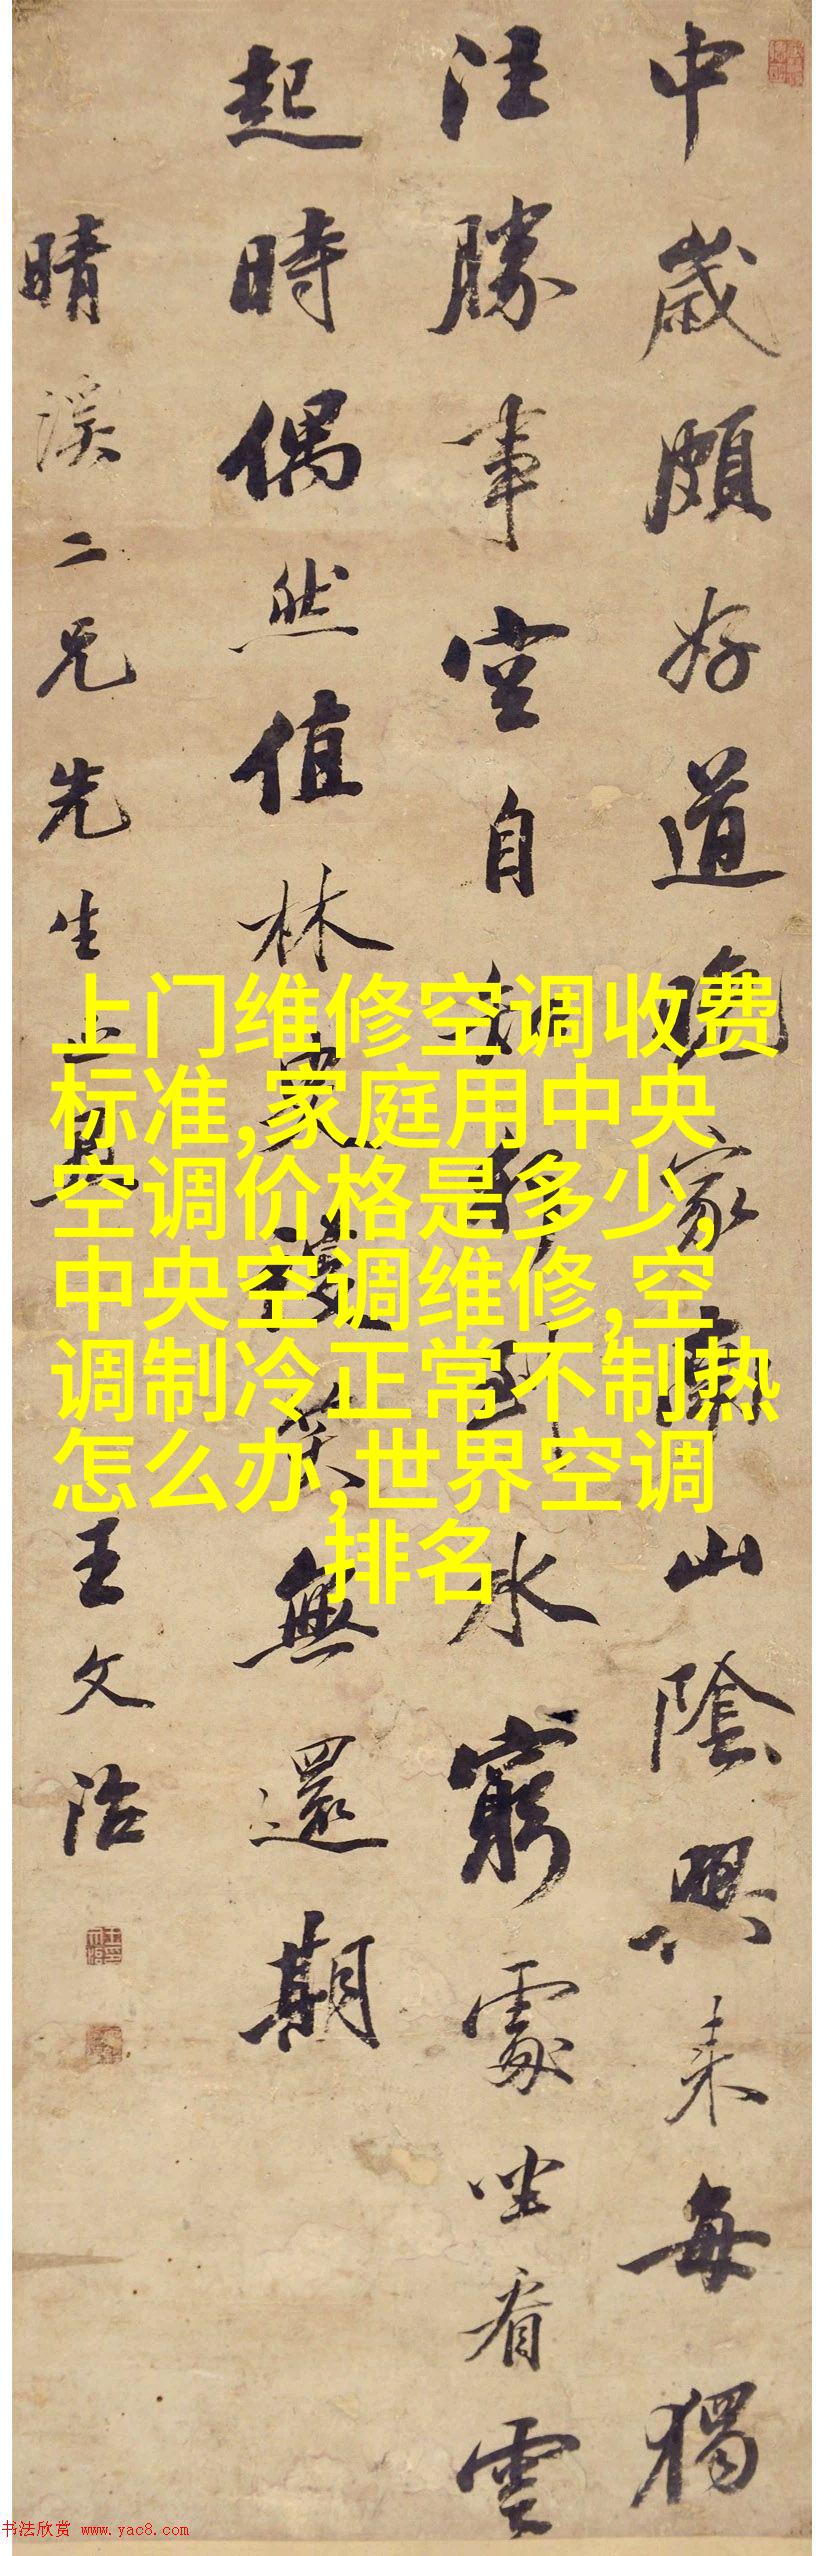 中歲頗好道晚家南山陲興來每獨
往勝事空自知行到水窮處坐看雲
起時偶然值林叟談笑無還期
晴溪二兄先生
王文治
上门维修空调收费
标准,家庭用中央
空调价格是多少,
中央空调维修,空
调制冷正常不制热
怎么办,世界空调
排名
书法欣赏 www.yac8.com